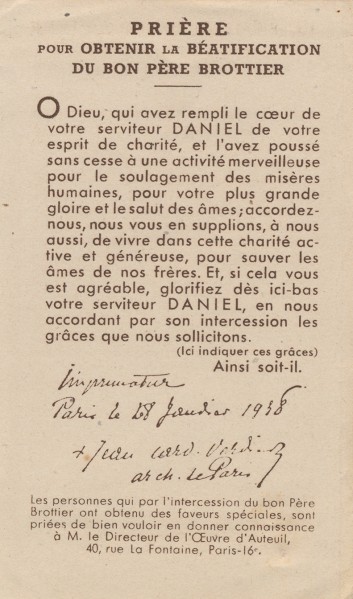 PRIÈRE
POUR OBTENIR LA BÉATIFICATION
DU BON PÈRE BROTTIER
O Dieu, qui avez rempli le cœur de
votre serviteur DANIEL de votre
esprit de charité, et l'avez poussé
sans cesse à une activité merveilleuse
pour le soulagement des misères
humaines, pour votre plus grande
gloire et le salut des âmes; accordez-
nous, nous vous en supplions, à nous
aussi, de vivre dans cette charité ac-
tive et généreuse, pour sauver les
âmes de nos frères. Et, si cela vous
est agréable, glorifiez dès ici-bas
votre serviteur DANIEL, en nous
accordant par son intercession les
grâces que nous sollicitons.
(Ici indiquer ces grâces)
Ainsi soit-il.
Imprimatur
Paris le 28 Janvier 1938
+ Jean card. Verdier
arch. de Paris
Les personnes qui par l'intercession du bon Père
Brottier ont obtenu des faveurs spéciales, sont
priées de bien vouloir en donner connaissance
à M. le Directeur de l'Œuvre d'Auteuil,
40, rue La Fontaine, Paris-16e.